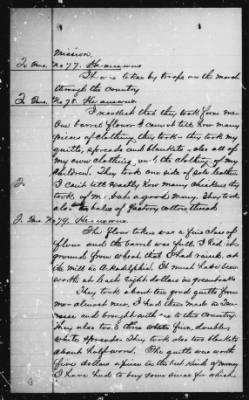 Mission.
To Ques. No 77. He answers
This was taken by troops on the march
through the country
To Ques. No 78. He answers
I recollect that they took from me
One barrel flour I cannot tell how many
pieces of clothing they took - they took my
quilts, spreads and blankets - also all of
my own clothing, and the clothing of my
children. They took one side of sole leather
I can't tell exactly how many chickens they
took of me but a good many. They took
also hanks of factory cotton thread
To Ques No 79. He answers
The flour taken was a fine class of
flour and the barrel was full. I had it
ground from wheat that I had raised, at
the mill in Arkadelphia. It must have been
worth at least eight dollars in greenbacks
They took about ten good quilts from
me almost new, I had them made in
and brought with us to this country.
They also took three white fine, double,
white spreads. They took also two blankets
about half worn. The quilts were worth
five dollars a piece in the best kind of money
I have had to buy some since for which